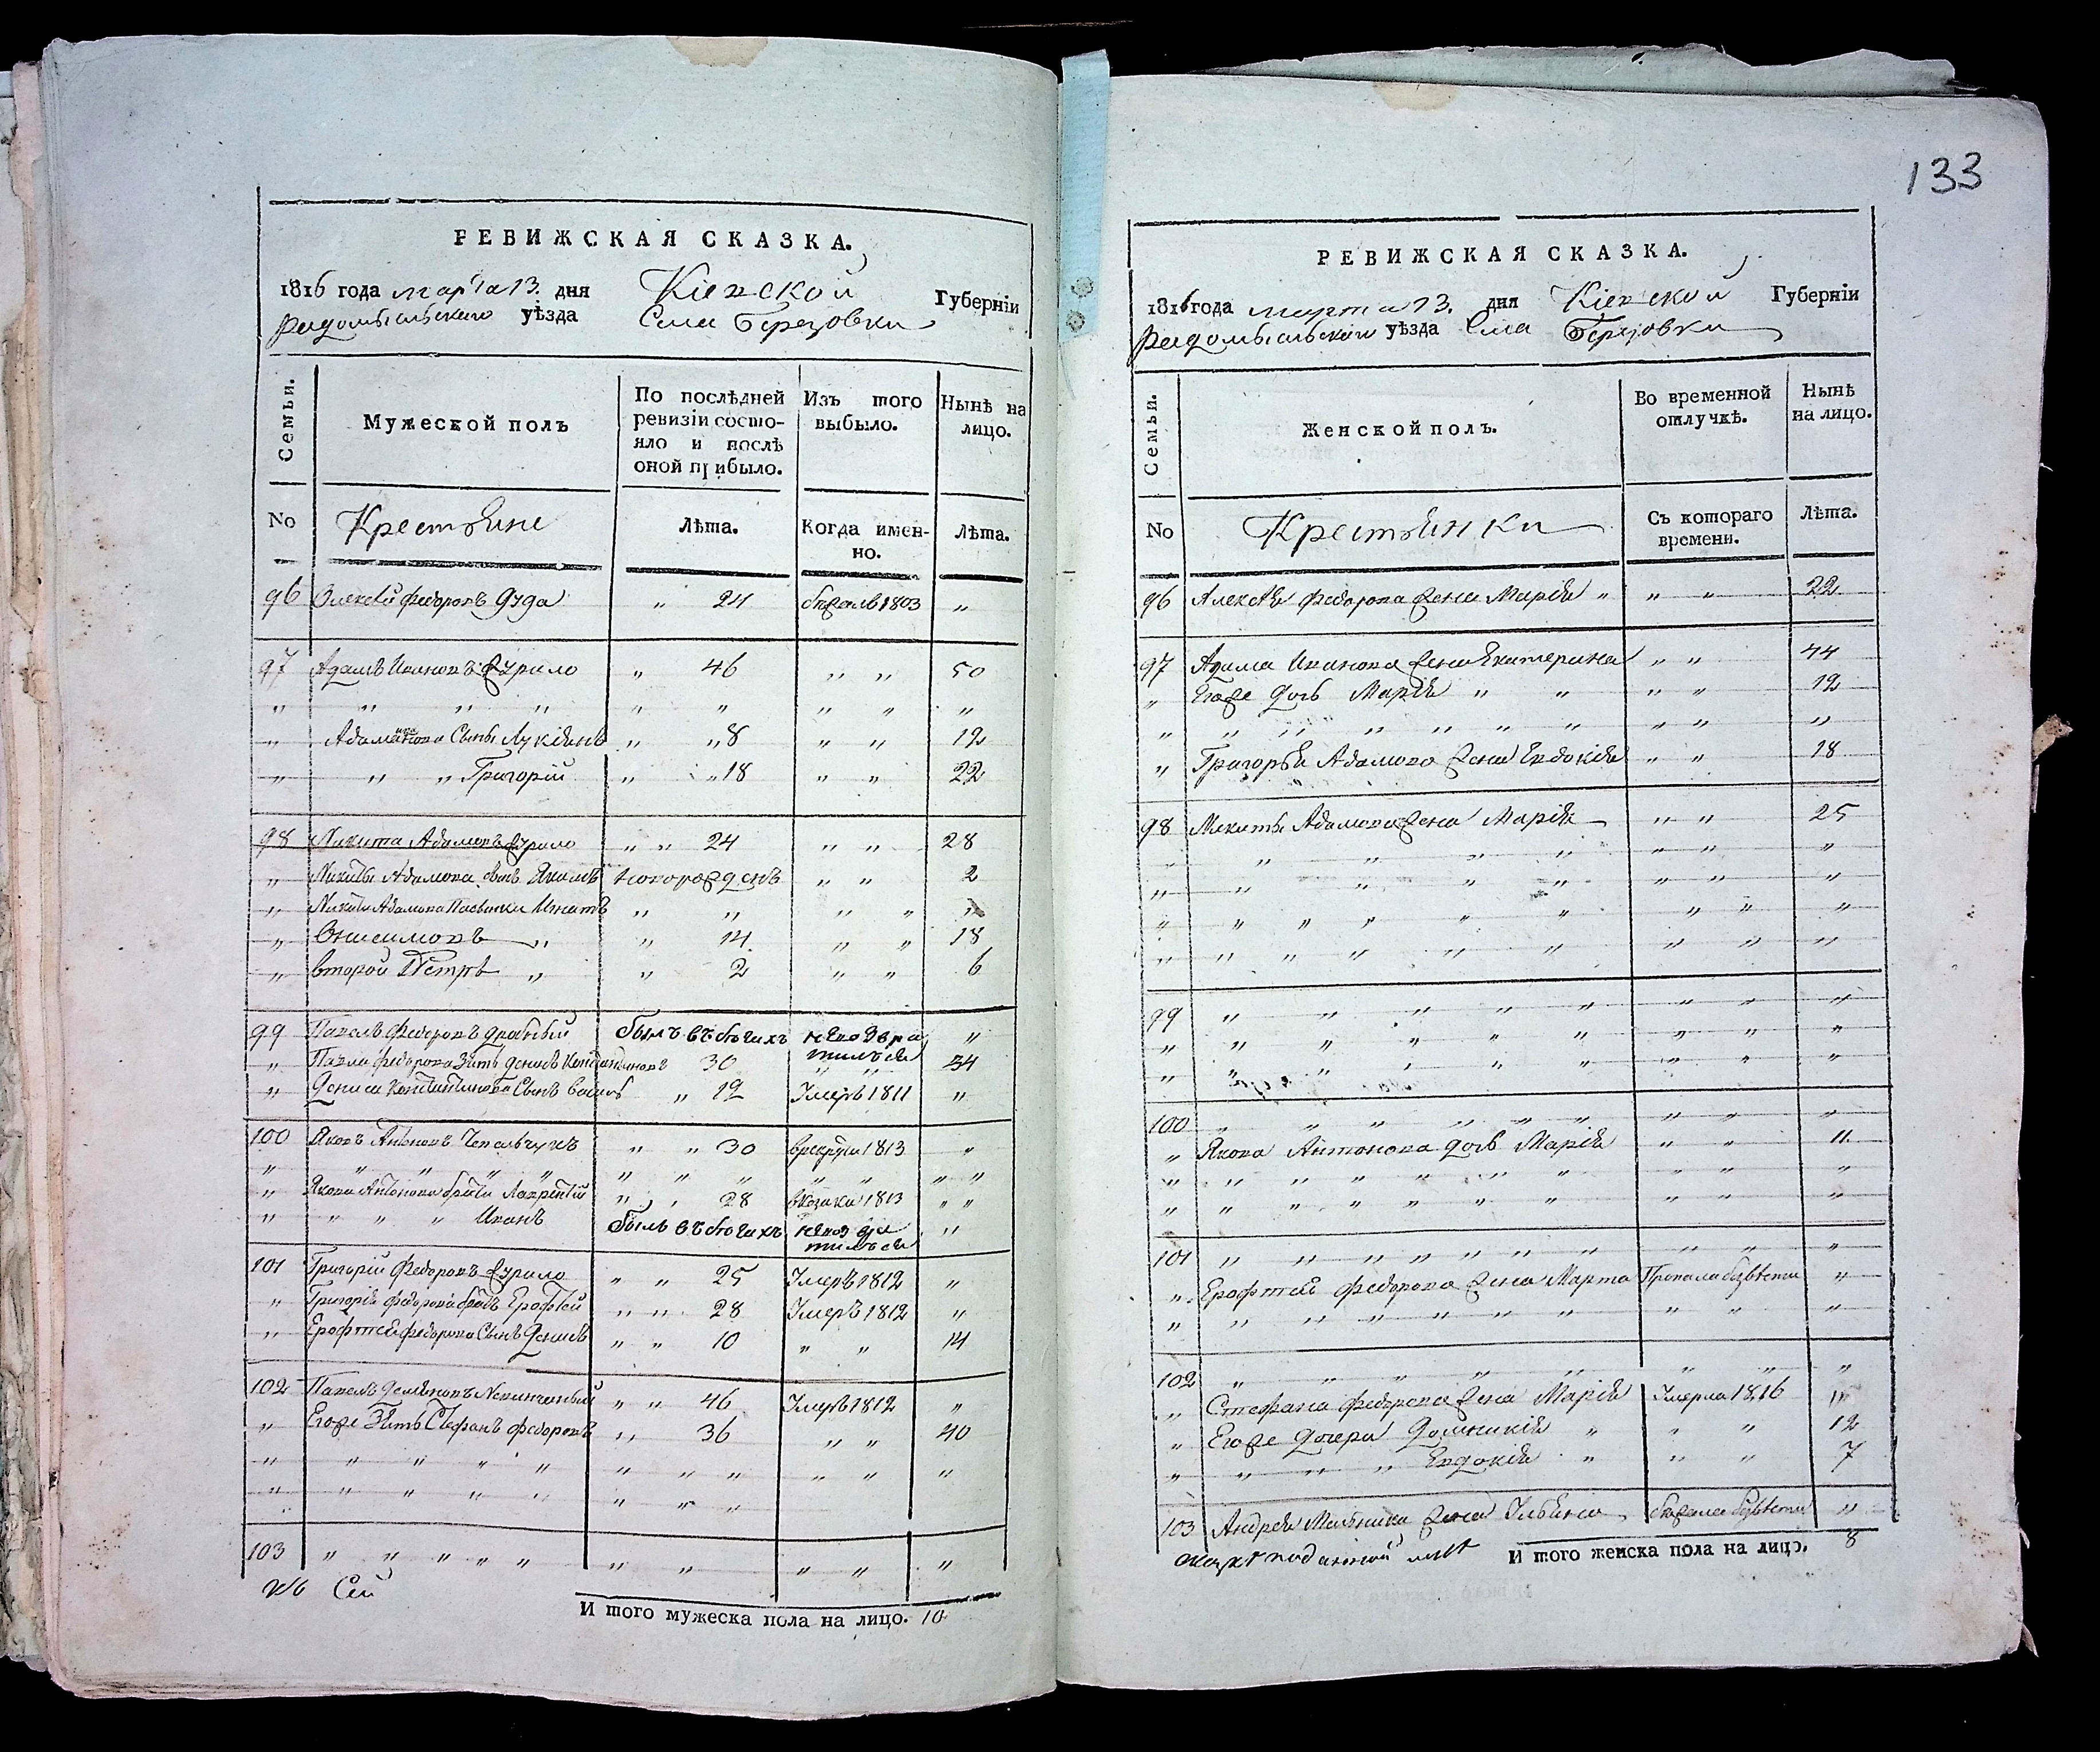 133
РЕВИЖСКАЯ СКАЗКА.
1816 года марта 13. дня Кіевской Губерніи
радомысльскаго уѣзда Села Березовки
Семьи.
Мужеской полъ
По послѣдней ревизіи состо-
яло и послѣ
оной прибыло.
Изъ того
выбыло.
Нынѣ на
лицо.
No
Крестьяне
Лѣта.
Когда имен-
но.
Лѣта.
96 Олексѣй Федоровъ Дуда " 24 бѣжалъ 1803 "
97 Адамъ Ивановъ Журило " 46 " " 50
" " " " " " " " "
" Адама Иванова Сынъ Лукіянъ " " 8 " " 12
" " " Григорій " " 18 " " 22
98 Никита Адамовъ Журило " " 24 " " 28
" Никиты Адамова сынъ Якимъ новорожденъ " " 2
" Никиты Адамова Пасынки Игнатъ " " " "
" Онисимовъ " " 14 " " 18
" второй Петръ " " 2 " " 6
99 Павелъ Федоровъ былъ въ бѣгахъ невозвра
тилься "
" Павла Федорова Зять Денисъ Константиновъ 30 " " 34
" Дениса Константинова Сынъ " 12 Умеръ 1811 "
100 Яковъ Антоновъ " " 30 врекруты 1813 "
" " " " " " " " " " " "
" Якова Антонова братъ Лаврентій " " 28 вказаки 1813 " "
" " " " Иванъ былъ въ бѣгахъ невозвра
тилься "
101 Григорій Федоровъ Журило " " 25 Умеръ 1812 "
" Григорія Федорова братъ Ерофѣй " " 28 Умеръ 1812 "
" Ерофтея Федорова Сынъ Денисъ " " 10 " " 14
102 Павелъ Демяновъ " " 46 Умеръ 1812 "
" Егоже Зять Стефанъ Федоровъ " 36 " " 40
" " " " " " " " " " "
" " " " " " " "
103 " " " " " " " " " "
И того мужеска пола на лицо. 10
РЕВИЖСКАЯ СКАЗКА.
1816 года марта 13. дня Кіевской Губерніи
радомысльскаго уѣзда Села Березовки
Семьи.
Женской полъ.
Во временной
отлучкѣ.
Нынѣ
на лицо.
No
Крестьянки
Съ котораго
времени.
Лѣта.
96 Алексѣя Федорова жена Марія " " " 22
97 Адама Иванова жена Екатерина " " 44
" Егоже дочь Марія " " " " 12
" " " " " " " " " "
" Григорья Адамова жена Евдокія " " 18
98 Микиты Адамова жена Марія " " 25
" " " " " " " "
" " " " " " " "
" " " " " " " " "
" " " " " " " " "
99 " " " " " " " "
" " " " " " " "
" " " " " " " "
100 " " " " " " " " "
" Якова Антонова дочь Марія " " 11
" " " " " " " " " "
" " " " " " " " " "
101 " " " " " " " " " " "
" Ерофтея Федорова жена Марта Пропала безвѣсти "
" " " " " " " " " "
102 " " " " " " " "
" Стефана Федорова жена Марія Умерла 1816 "
" Егоже дочери Домникія " " " 12
" " " " Евдокія " " " 7
103 Андрея Мельника жена Ульяна бѣжала безвѣсти "
И того женска пола на лицо. 8